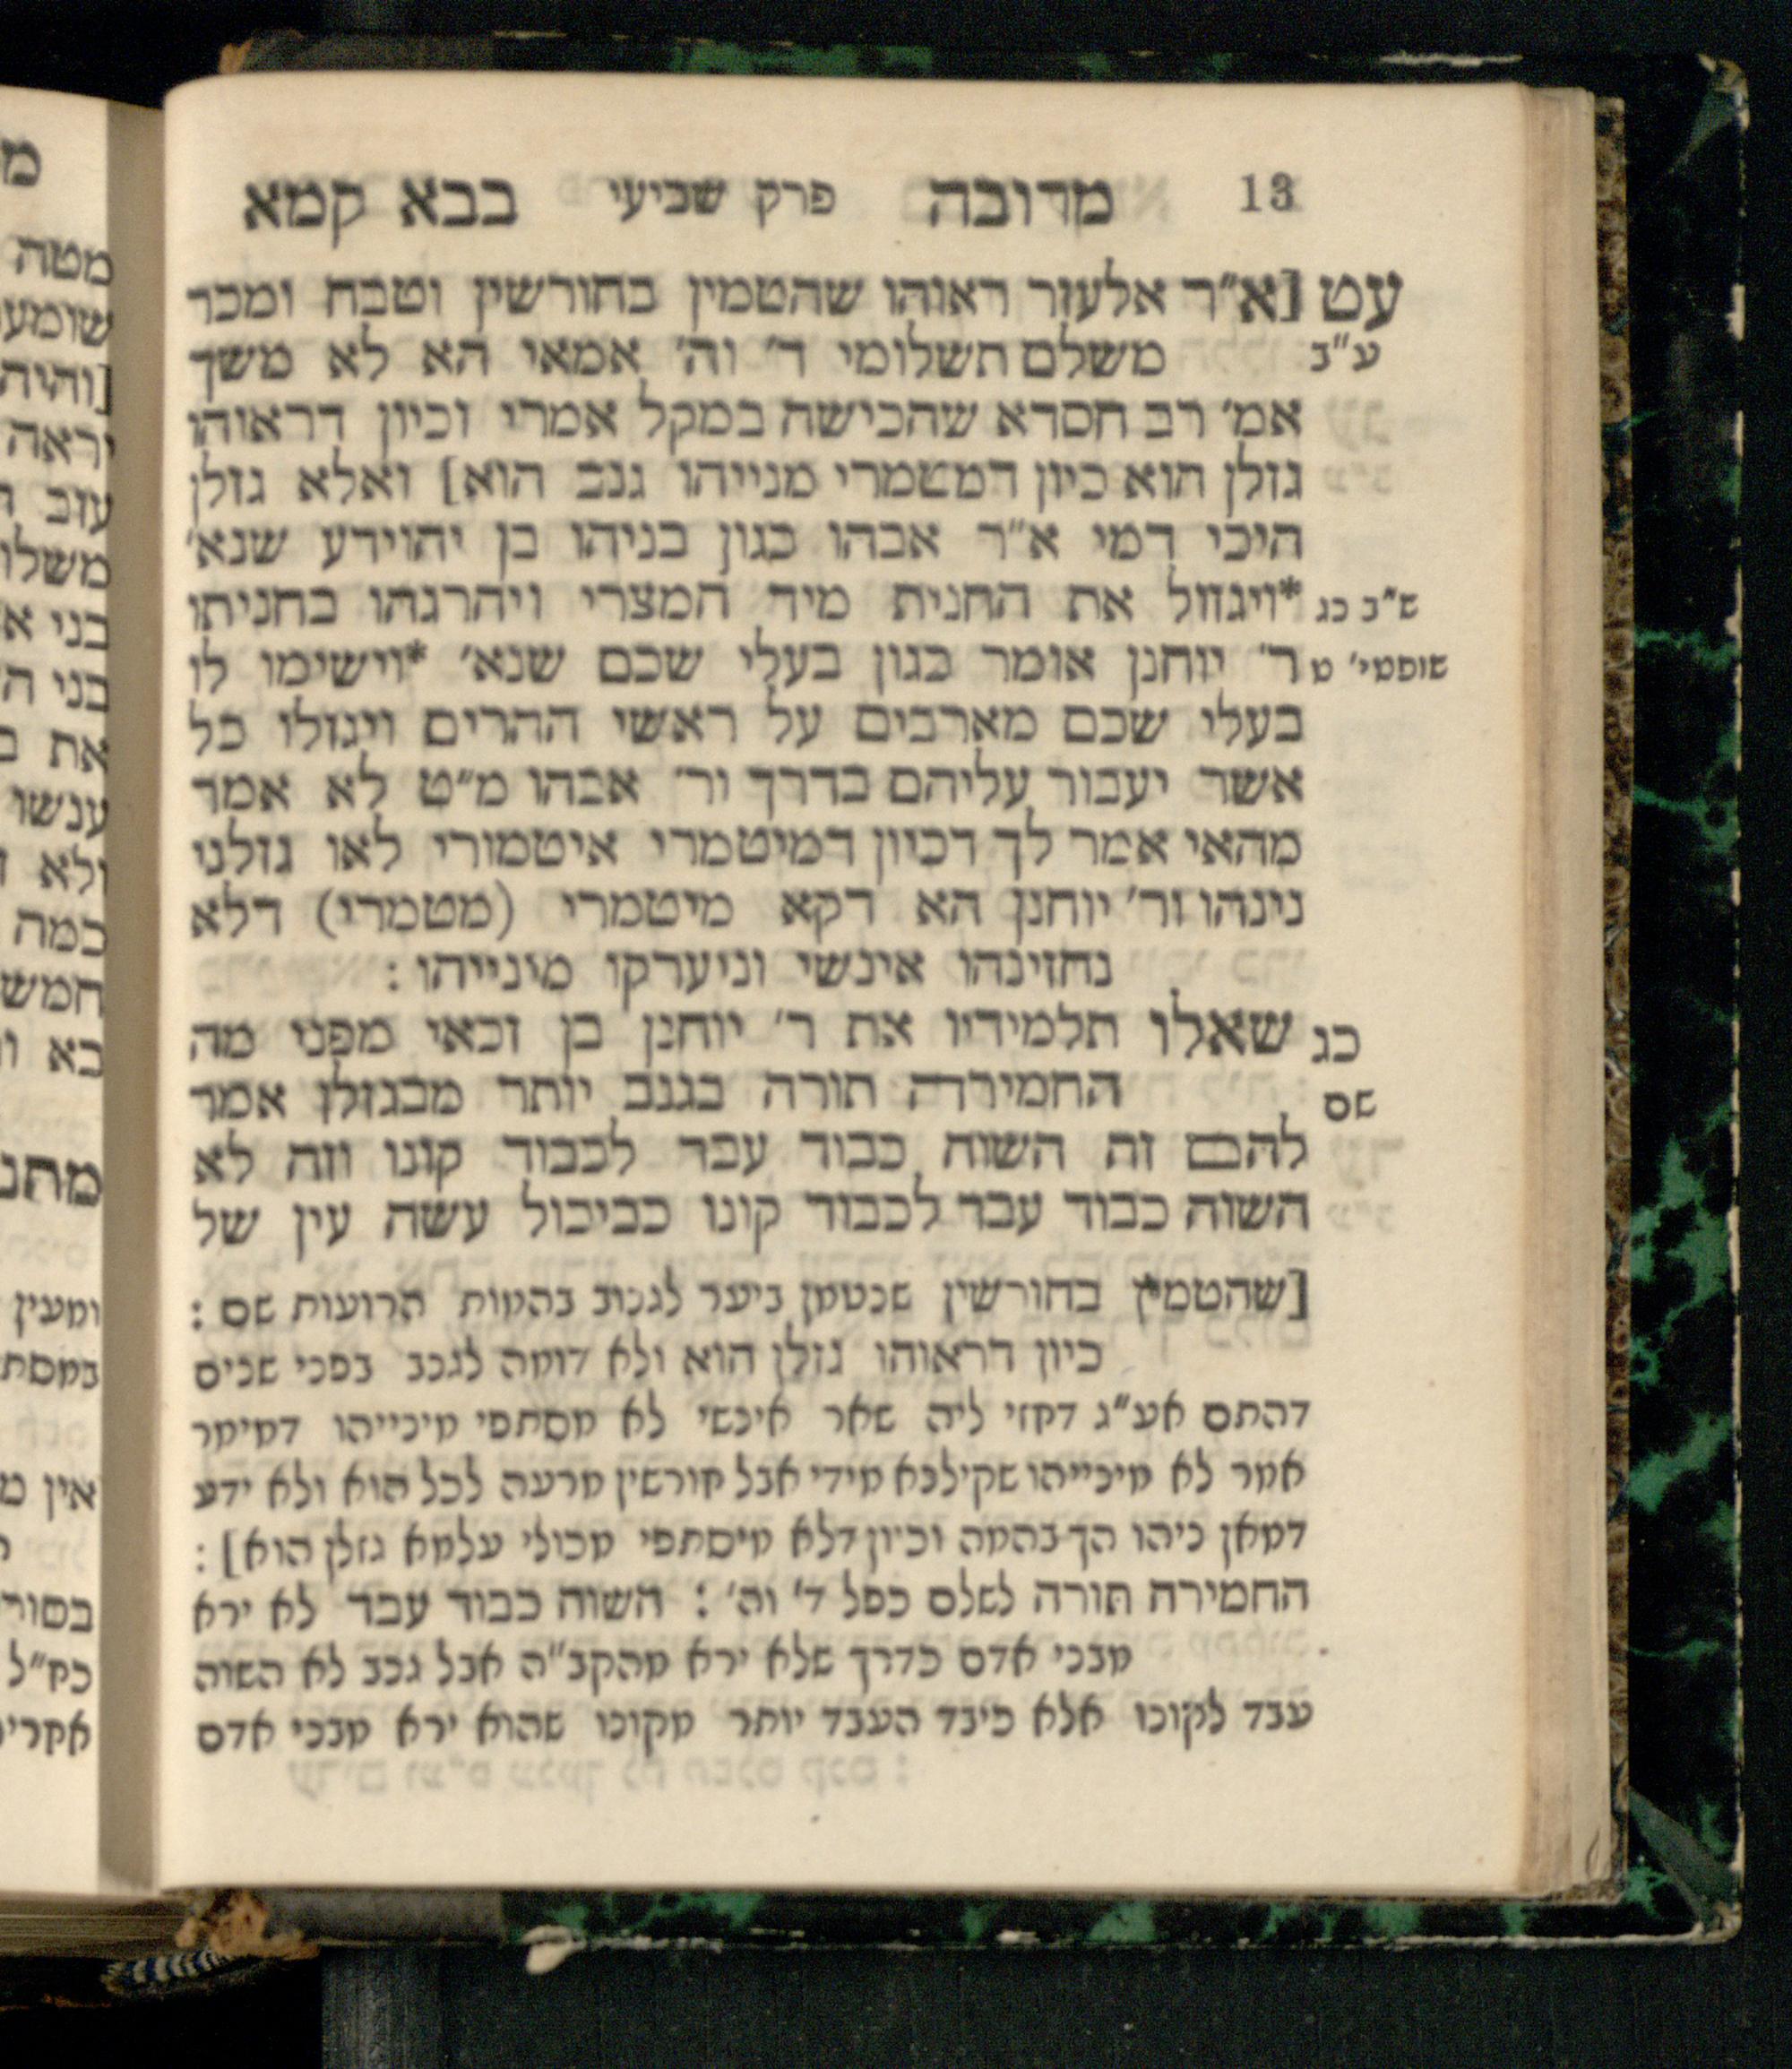 13 מרובה פרק שביעי בבא קמא
עט [א״ר אלעזר ראוהו שהטמין בחורשין וטבח ומכר
ע״ב משלם תשלומי ד׳ וה׳ אמאי הא לא משך
אמ׳ רב חסדא שהכישה במקל אמרי וכיון דראוהו
גזלן הוא כיון דמטמרי מנייהו גנב הוא] ואלא גזלן
היכי דמי א״ר אבהו כגון בניהו בן יהוידע שנא׳
ש״ב כג *ויגזול את החנית מיד המצרי ויהרגהו בחניתו
שופטי׳ ט ר׳ יוחנן אומר כגון בעלי שכם שנא׳ *וישימו לו
בעלי שכם מארבים על ראשי ההרים ויגזלו כל
אשר יעבור עליהם בדרך ור׳ אבהו מ״ט לא אמר
מהאי אמר לך דכיון דמיטמרי איטמורי לאו גזלני
נינהו ור׳ יוחנן הא דקא מיטמרי (מטמרי) דלא
נחזינהו אינשי וניערקו מינייהו :
כג שאלו תלמידיו את ר׳ יוחנן בן זכאי מפני מה
שם החמירה תורה בגנב יותר מבגזלן אמר
להם זה השוה כבוד עבד לכבוד קונו וזה לא
השוה כבוד עבד לכבוד קונו כביכול עשה עין של
[שהטמין בחורשין שנטמן ביער לגנוב בהמות הרועות שם :
כיון דראוהו גזלן הוא ולא דומה לגנב בפני שנים
דהתם אע״ג דחזי ליה שאר אינשי לא מסתפי מינייהו דמימר
אמר לא מינייהו שקילנא מידי אבל חורשין מרעה לכל הוא ולא ידע
דמאן ניהו הך בהמה וכיון דלא מיסתפי מכולי עלמא גזלן הוא] :
החמירה תורה לשלם כפל ד׳ וה׳ : השוה כבוד עבד לא ירא
מבני אדם כדרך שלא ירא מהקב״ה אבל גנב לא השוה
עבד לקונו אלא כיבד העבד יותר מקונו שהוא ירא מבני אדם